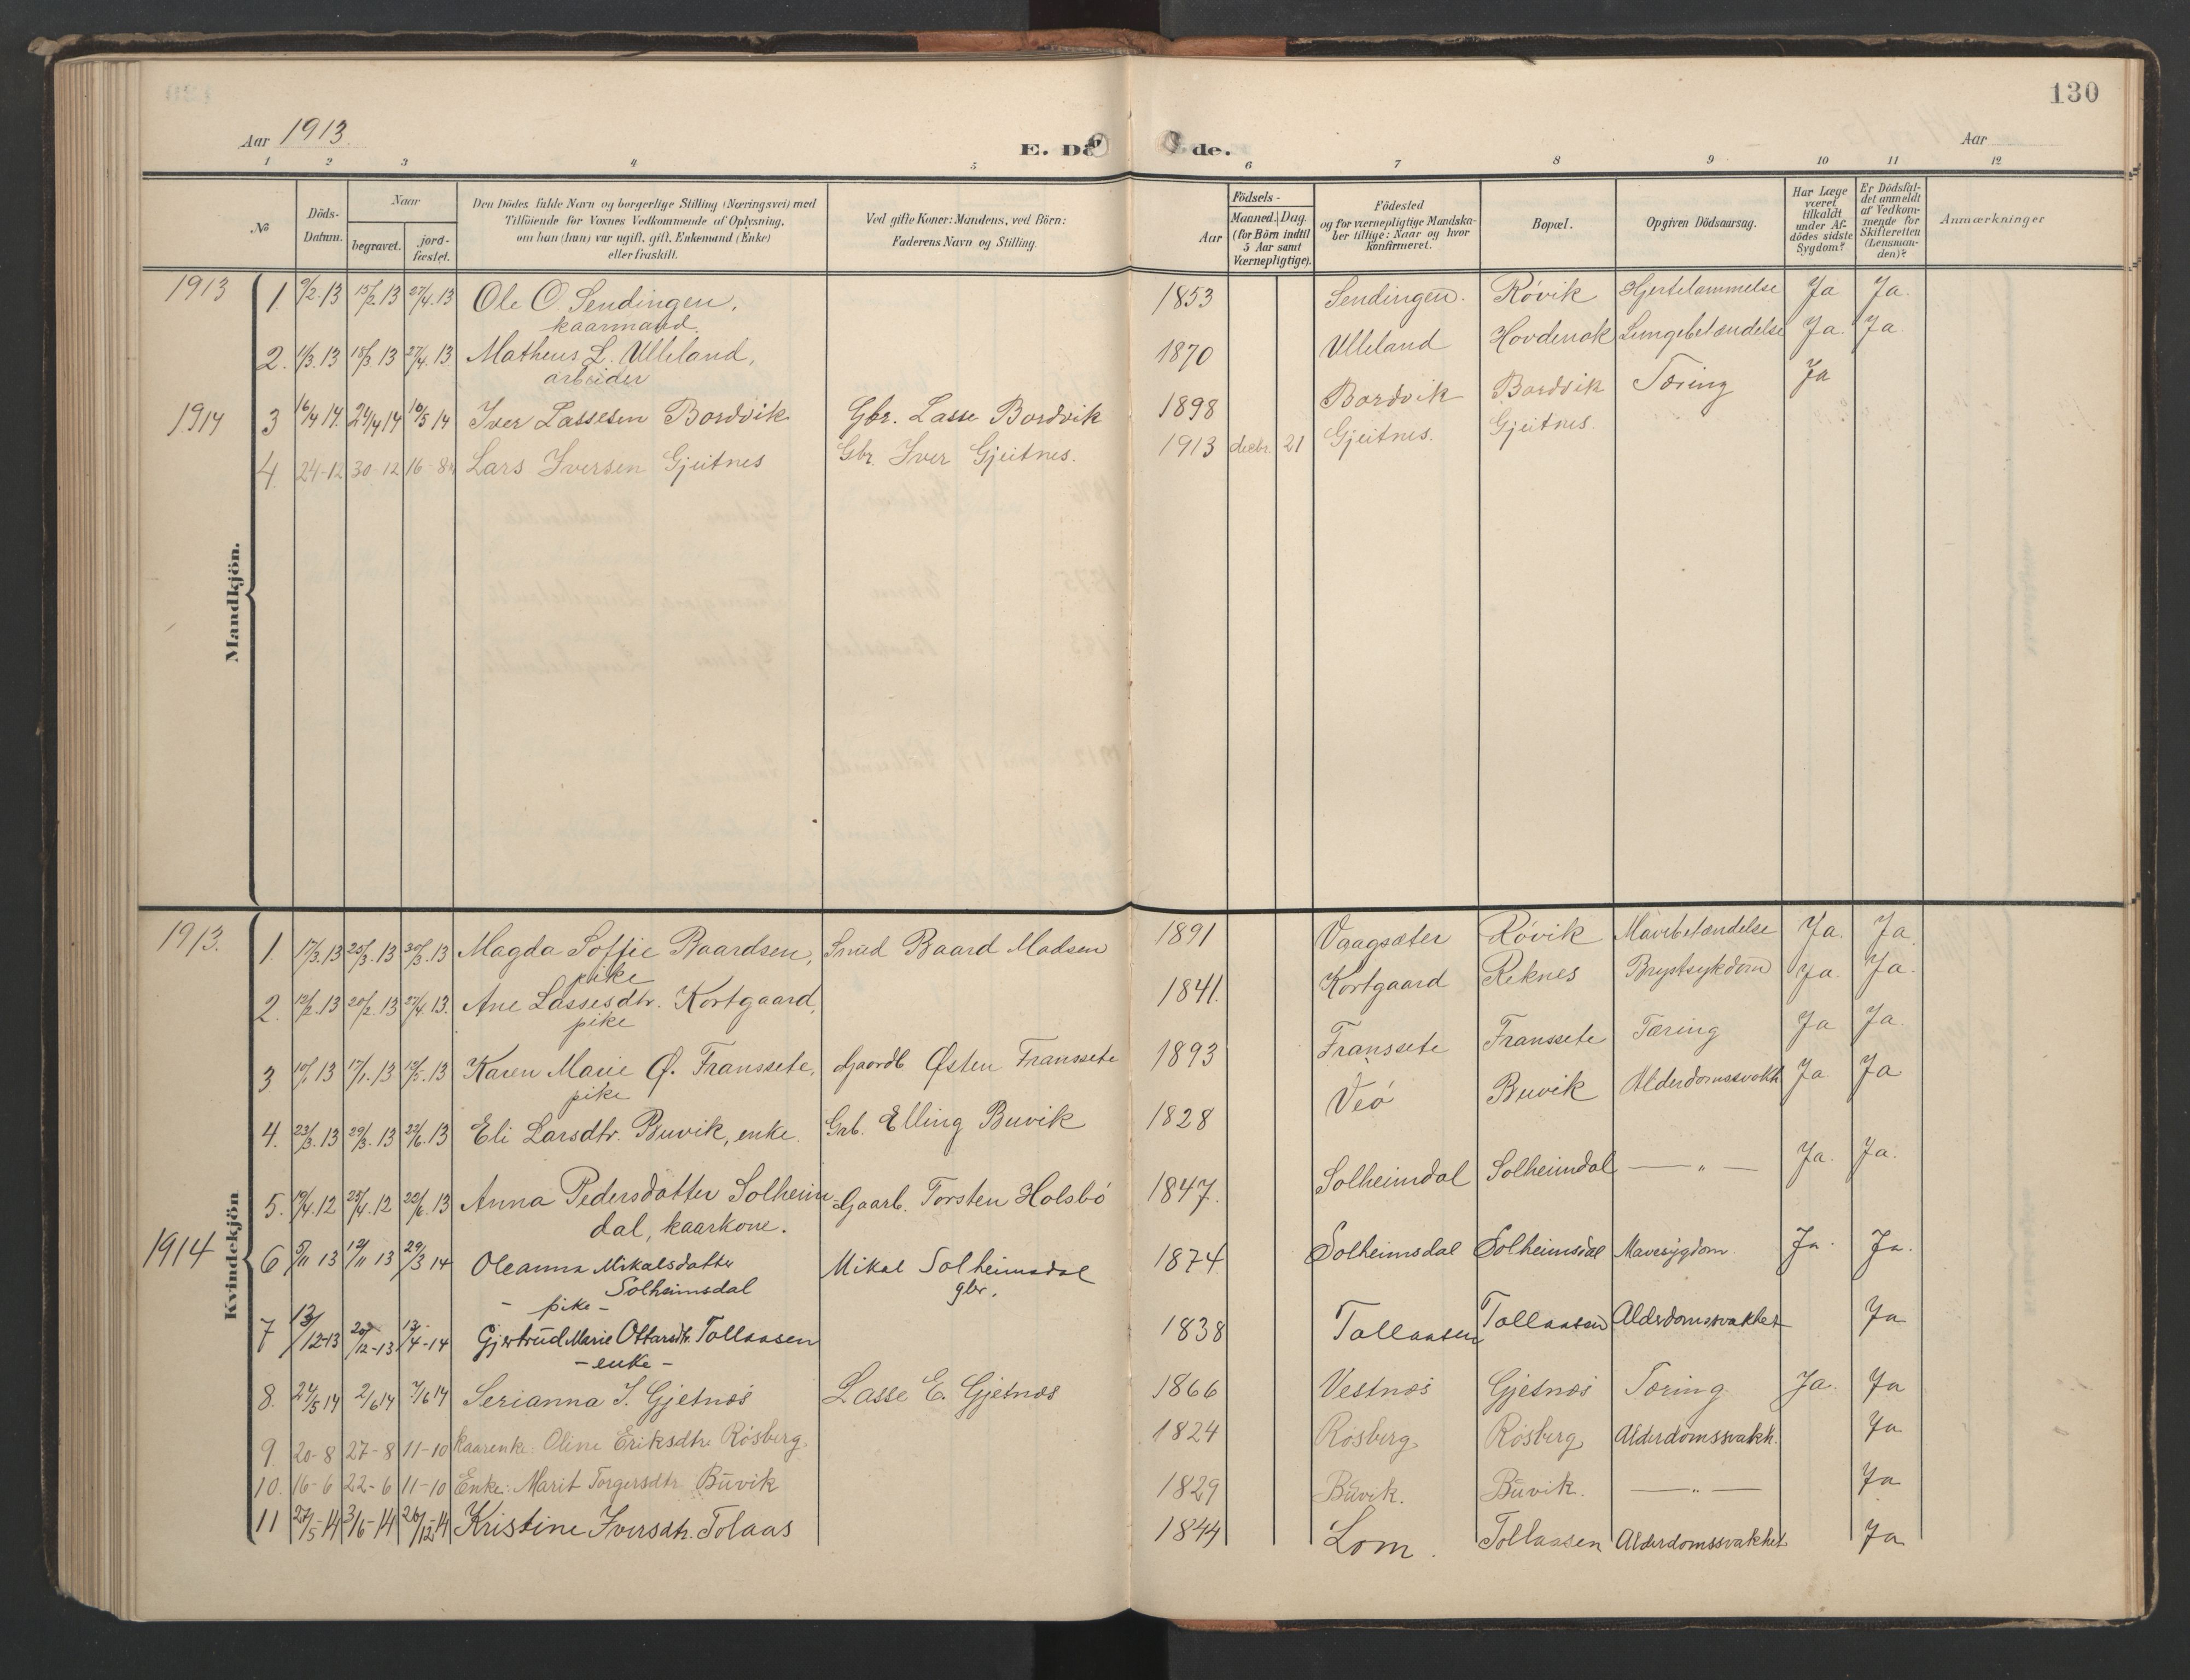 130
Aar 1913.
E. Dö de.
Aar
1 2 3 4 5 6 7 8 9 10 11 12
№
Döds-Datum.
Naar
begravet.
jord-fæstet.
Den Dödes fulde Navn og borgerlige Stilling (Næringsvei) med
Tilföiende for Voxnes Vedkommende af Oplysning,
om han (hun) var ugift, gift, Enkemand (Enke)
eller fraskilt.
Ved gifte Koner: Mandens, ved Börn:
Faderens Navn og Stilling.
Födsels-
Aar
Maaned. Dag.
(for Börn indtil
5 Aar samt
Værnepligtige).
Födested
og for værnepligtige Mandska-
ber tillige: Naar og hvor
konfirmeret.
Bopæl.
Opgiven Dödsaarsag.
Har Læge
været
tilkaldt
under Af-
dödes sidste
Sygdom?
Er Dödsfal-
det anmeldt
af Vedkom-
mende for
Skifteretten
(Lensman-
den)?
Anmærkninger
Mandkjön.
1913 1. 9/2.13 15/2.13 27/4.13 Ole O. Sendingen, 1853 Sendingen. Róvik Hjertelammelse Ja Ja.
kaarmand.
2. 11/3.13 18/3.13 27/4.13. Matheus L. Ulleland, 1870 Ulleland Hovdenak Lungebetændelse Ja. Ja
arbeider
1914 3 16/4 14. 24/4 14 10/5 14 Iver Lassesen Bordvik Gbr. Lasse Bordvik 1898 Bordvik Bordvik Tæring Ja
4. 24-12 30-12 16-8 Lars Iversen Gjeitnes Gbr. Iver Gjeitnes. 1913 decbr. 21 Gjeitnes. Gjeitnes.
Kvindekjön
1913. 1. 17/3.13 25/3.13 30/3.13 Magda Soffie Baardsen, Smed Baard Madsen 1891 Vaagsæter Róvik Mavebetændelse Ja. Ja.
pike
2. 12/2.13 20/2.13 27/4.13. Ane Lassesdtr. Kortgaard, 1841. Kortgaard Reknes Brystsykdom Ja. Ja.
pike
3 10/1 13 17/1.13 12/5.13 Karen Marie Ø. Franssete, Gaardb Østen Franssete 1893 Franssete Franssete Tæring Ja Ja.
pike
4. 23/3.13 29/3.13 22/6.13 Eli Larsdtr. Buvik, enke. Grb. Elling Buvik 1828 Veó Buvik Alderdomssvakh. Ja. Ja
5. 19/4.12 25/4.12 22/6.13 Anna Pedersdatter Solheim- Gaarb. Torsten Holsbó 1847. Solheimdal Solheimdal — „ — Ja. Ja.
dal, kaarkone.
1914 6 5/11 13 12/11 13 29/3 14 Oleanna Mikalsdatter Mikal Solheimsdal 1874 Solheimsdal Solheimsdal Mavesygdom. Ja. Ja.
Solheimsdal gbr.
- pike -
7 13/12-13 20/12-13 13/4-14 Gjertrud Marie Ottarsdtr. Tollaasen 1838 Tollaasen Tollaasen Alderdomssvakhet Ja
- enke -
8. 27/5 14 2/6 14 7/6 14 Serianna I. Gjetnæs Lasse E. Gjetnæs 1866 Vestnæs Gjetnæs Tæring. Ja. Ja
9. 20-8 27-8 11-10 Kaarenke: Oline Eriksdtr. Rósberg 1824 Rósberg Rósberg Alderdomssvakh. Ja
10. 16-6 22-6 11-10 Enke: Marit Torgersdtr. Buvik 1829 Buvik. Buvik. — „ — Ja
11 27/5-14 3/6-14 26/12-14 Kristine Iversdtr. Tolaas 1844 Lom. Tollaasen Alderdomssvakhet Ja